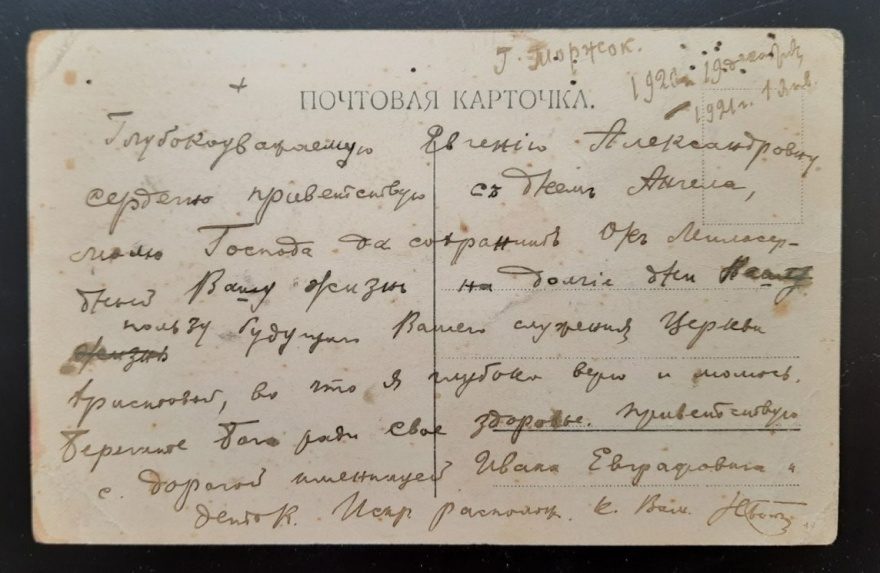 Г. Торжок.
1920 г. 19 декабря
1921 г. 1 Янв.
ПОЧТОВАЯ КАРТОЧКА.
Глубокоуважаемую Евгенію Александровну
сердечно привѣтствую съ днемъ Ангела,
молю Господа да сохранитъ Онъ Милосер-
дный Вашу жизнь на долгіе дни
пользу будущаго Вашего служенія Церкви
Христовой, во что я глубоко вѣрю и молюсь.
Берегите Бога ради свое здоровье. Привѣтствую
с дорогой имениницей Ивана Евграфовича и
деток. Искр располож. к Вам